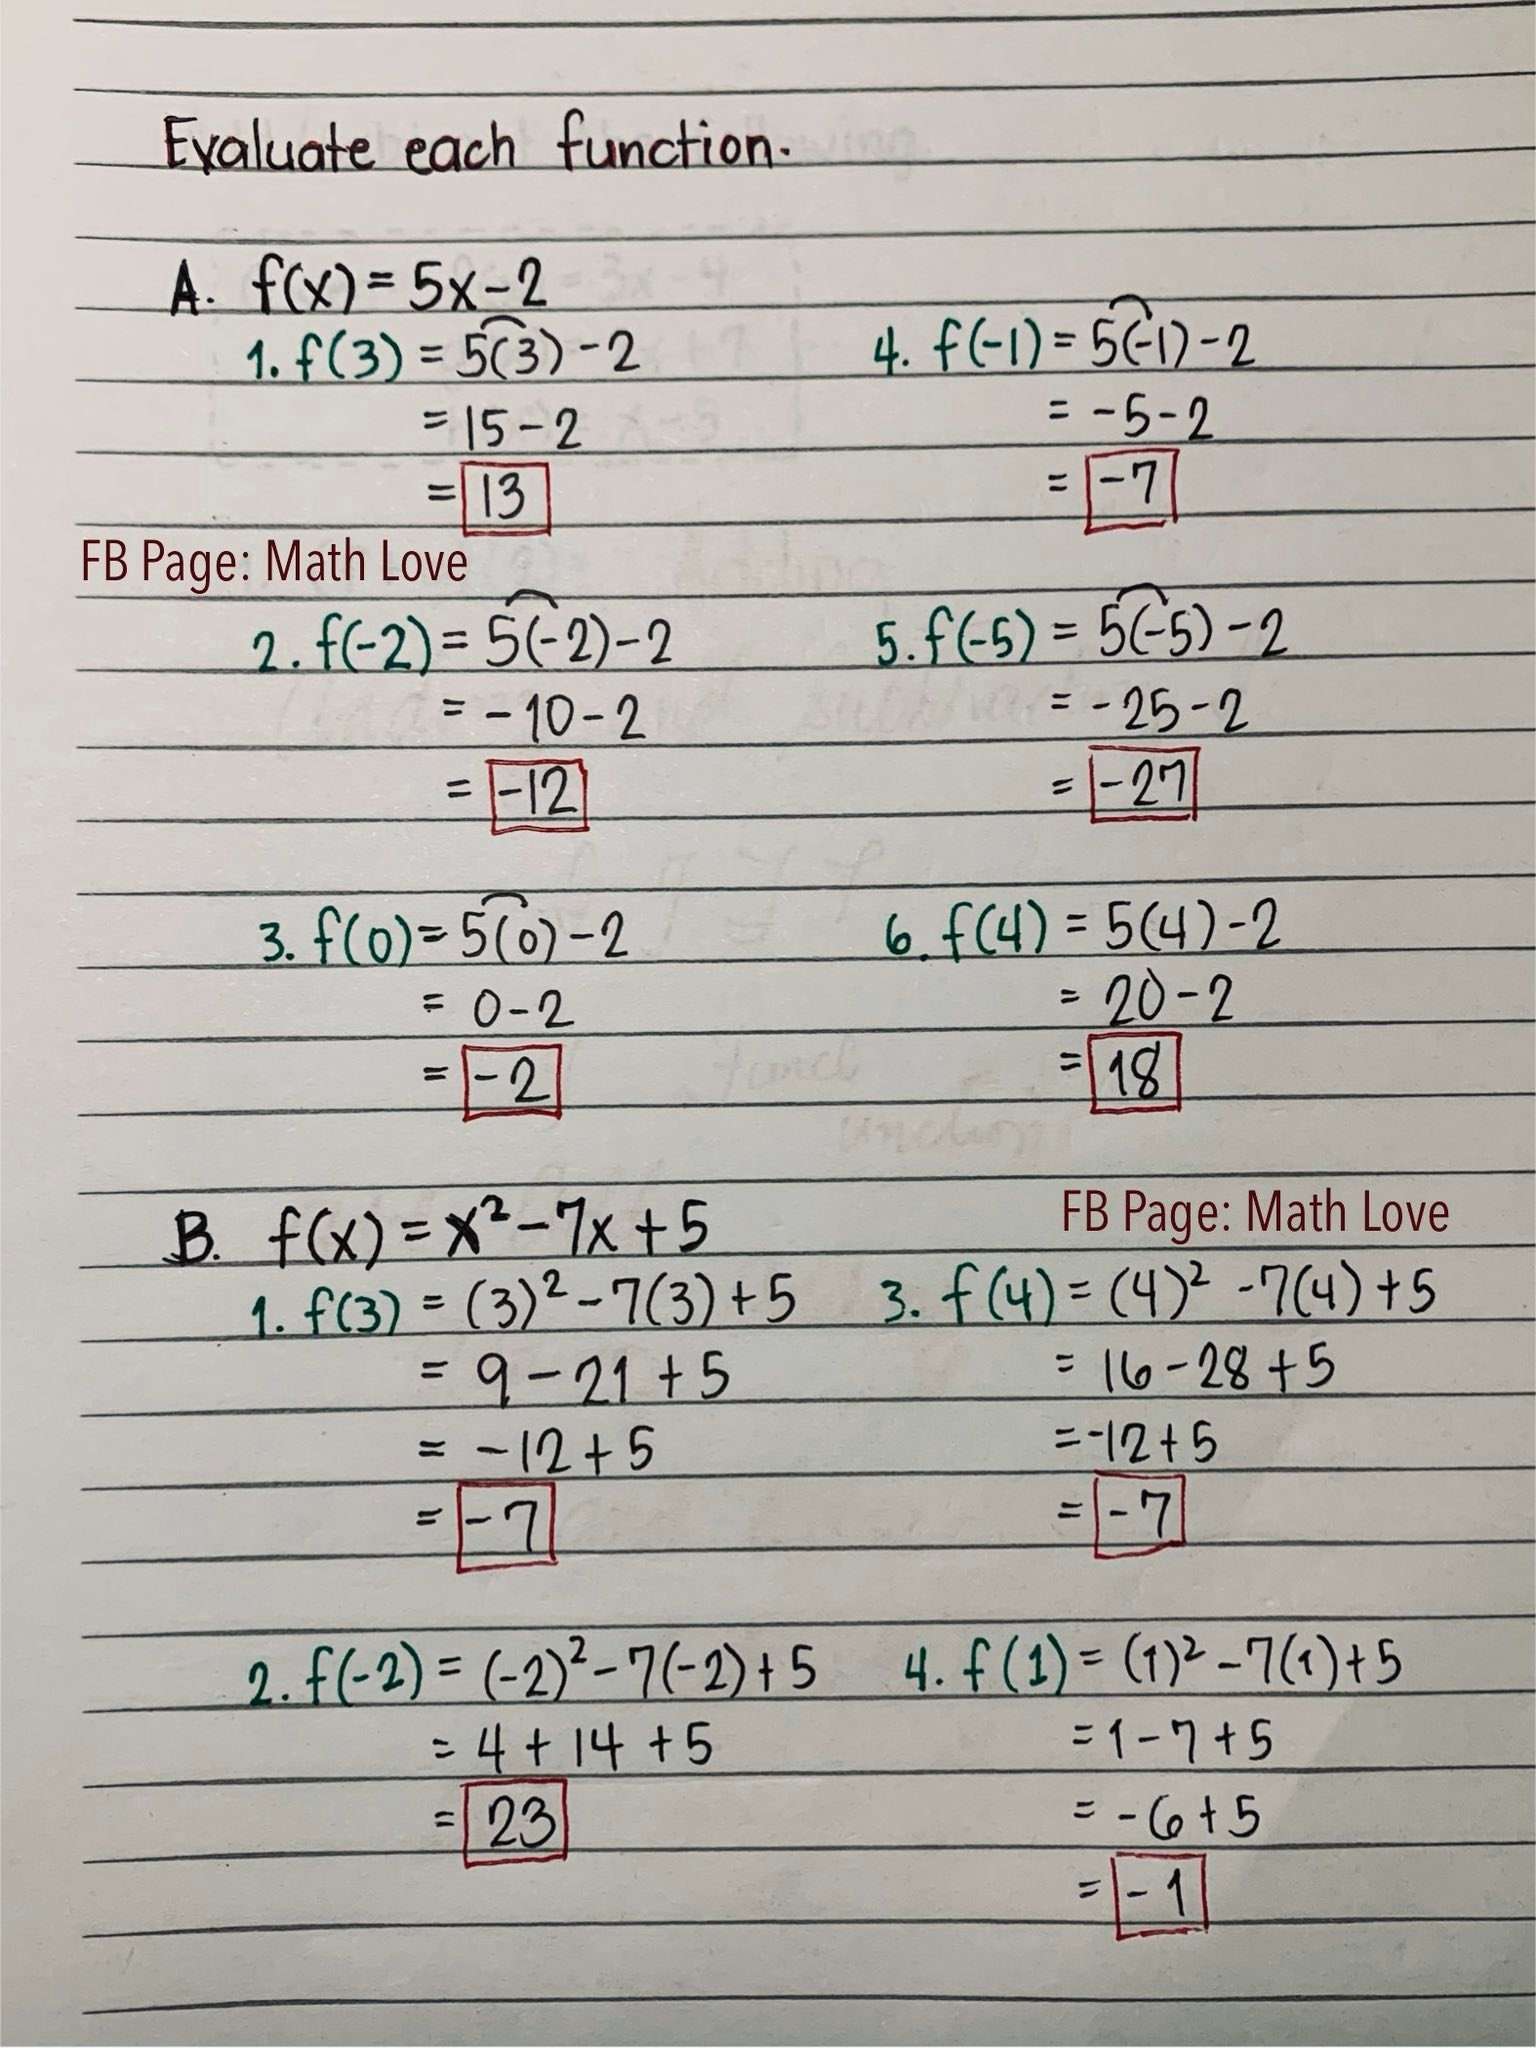 Evaluate each function.
A. f(x) = 5x - 2
1. f(3) = 5(3) - 2
= 15 - 2
= 13
4. f(-1) = 5(-1) - 2
= -5 - 2
= -7
FB Page: Math Love
2. f(-2) = 5(-2) - 2
= -10 - 2
= -12
5. f(-5) = 5(-5) - 2
= -25 - 2
= -27
3. f(0) = 5(0) - 2
= 0 - 2
= -2
6. f(4) = 5(4) - 2
= 20 - 2
= 18
B. f(x) = x² - 7x + 5
FB Page: Math Love
1. f(3) = (3)² - 7(3) + 5
= 9 - 21 + 5
= -12 + 5
= -7
3. f(4) = (4)² - 7(4) + 5
= 16 - 28 + 5
= -12 + 5
= -7
2. f(-2) = (-2)² - 7(-2) + 5
= 4 + 14 + 5
= 23
4. f(1) = (1)² - 7(1) + 5
= 1 - 7 + 5
= -6 + 5
= -1